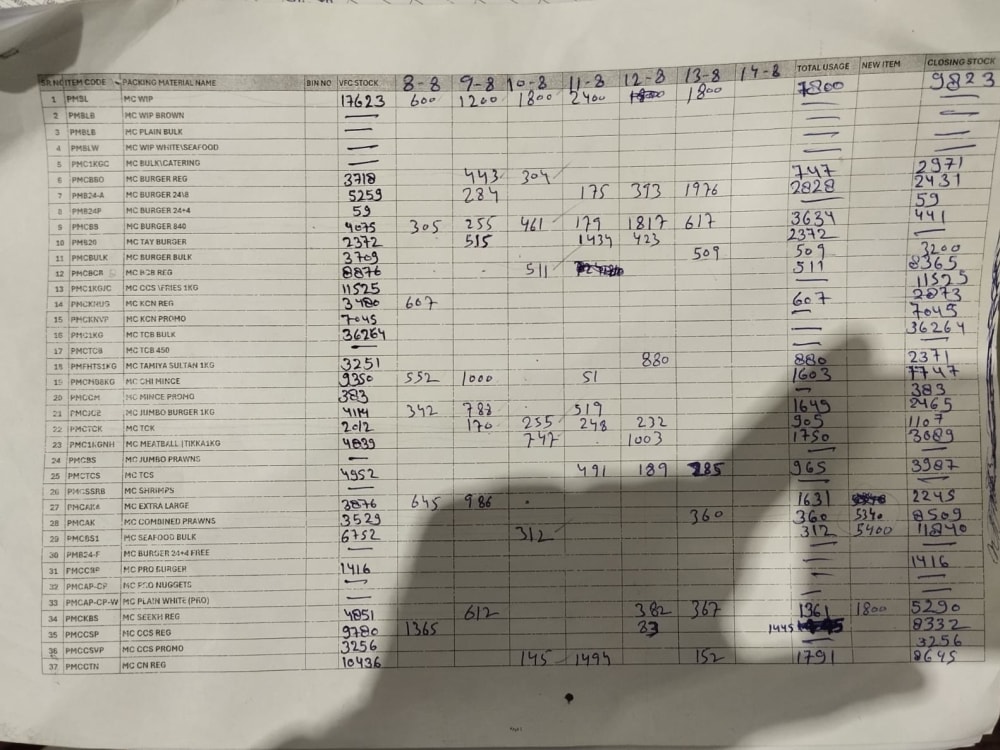 SR.NO ITEM CODE PACKING MATERIAL NAME BIN NO VFC STOCK 8-8 9-8 10-8 11-8 12-8 13-8 14-8 TOTAL USAGE NEW ITEM CLOSING STOCK
1 PMBL MC WIP 17623 600 1200 1800 2400 1800 7800 9823
2 PMBLB MC WIP BROWN — — —
3 PMBLB MC PLAIN BULK — — —
4 PMBLW MC WIP WHITE\SEAFOOD — — —
5 PMC1KGC MC BULK\CATERING — — —
6 PMCBBO MC BURGER REG 3718 443 304 747 2971
7 PMB24-A MC BURGER 24\8 5259 284 175 393 1976 2828 2431
8 PMB24P MC BURGER 24+4 59 — 59
9 PMCBS MC BURGER 840 4075 305 255 461 179 1817 617 3634 441
10 PMS20 MC TAY BURGER 2372 515 1434 423 2372 —
11 PMCBULK MC BURGER BULK 3709 509 509 3200
12 PMCBCR REG 8876 511 511 8365
13 PMC1KGJC MC CCS \FRIES 1KG 11525 — 11525
14 PMCKNUG MC KCN REG 3480 607 607 2873
15 PMCKNVP MC KCN PROMO 7045 — 7045
16 PMC1KG MC TCB BULK 36264 — 36264
17 PMCTCB MC TCB 450 — — —
18 PMFHTS1KG MC TAMIYA SULTAN 1KG 3251 880 880 2371
19 PMCMB8KG MC CHI MINCE 9350 552 1000 51 1603 7747
20 PMCCM MC MINCE PROMO 383 — 383
21 PMCJCB MC JUMBO BURGER 1KG 4114 342 788 519 1649 2465
22 PMCTCK MC TCK 2012 170 255 248 232 905 1107
23 PMC1KGNH MC MEATBALL |TIKKA1KG 4839 747 1003 1750 3089
24 PMCBS MC JUMBO PRAWNS — — —
25 PMCTCS MC TCS 4952 491 189 285 965 3987
26 PMCSSRB MC SHRIMPS — — —
27 PMCAKA MC EXTRA LARGE 3876 645 986 1631 2245
28 PMCAK MC COMBINED PRAWNS 3529 360 360 5340 8509
29 PMCBS1 MC SEAFOOD BULK 6752 312 312 5400 11840
30 PMB24-F MC BURGER 24+4 FREE — — —
31 PMCCRP MC PRO BURGER 1416 — 1416
32 PMCAP-CP MC PRO NUGGETS — — —
33 PMCAP-CP-W MC PLAIN WHITE (PRO) — — —
34 PMCKBS MC SEEKH REG 4851 612 382 367 1361 1800 5290
35 PMCCSP MC CCS REG 9780 1365 83 1445 8332
36 PMCCSVP MC CCS PROMO 3256 — 3256
37 PMCCTN MC CN REG 10436 145 1494 152 1791 8645